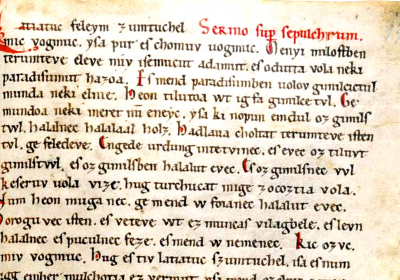 Latiatuc feleym zumtuchel Sermo sup sepulchrum.
mic vogmuc. yſa pur eſ chomuv uogmuc. Menyi miloſtben
terumteve eleve miv iſemucut adamut. eſ odutta vola neki
paradiſumut hazoa. Eſ mend paradiſumben uolov gimilcictul
munda neki elnie. Heon tilutoa wt ig fa gimilce tvl. Ge
mundoa neki meret nũ eneyc. yſa ki nopun emdul oz gimilſ
twl. halalnec halalaal holz. Hadlaua choltat terumteve iſten
tvl. ge feledeve. Engede urdung intetvinec. eſ evec oz tiluvt
gimilſtvvl. eſ oz gimilſben halalut evec. Eſ oz gimilſnec vvl
keſeruv uola vize. hug turchucat mige zocoztia vola.
Num heon muga nec. ge mend w foianec halalut evec.
Horogu vec iſten. eſ veteve wt ez muncaſ vilagbele. eſ levn
halalnec eſ puculnec feze. eſ mend w nemenec. Kic ozvc.
miv vogmuc. Hug eſ tiv latiatuv ſzumtuchel. iſa eſ num
igg ember mulchotia ez vermut. yſa mend